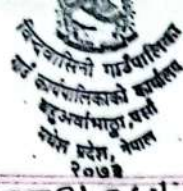 विन्दवासिनी गाउँपालिका
गाउँ कार्यपालिकाको कार्यालय
बहुअर्वाभाठा, पर्सा
मधेश प्रदेश, नेपाल
२०७३